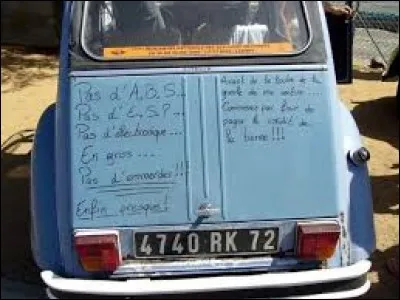 Pas d'A.B.S....
Pas d'E.S.P....
Pas d'électronique...
En gros....
Pas d'emmerdes!!!
Enfin presque!
Avant de te foutre de la
gueule de ma voiture....
Commence par finir de
payer le crédit de
la tienne!!!
4740 RK 72